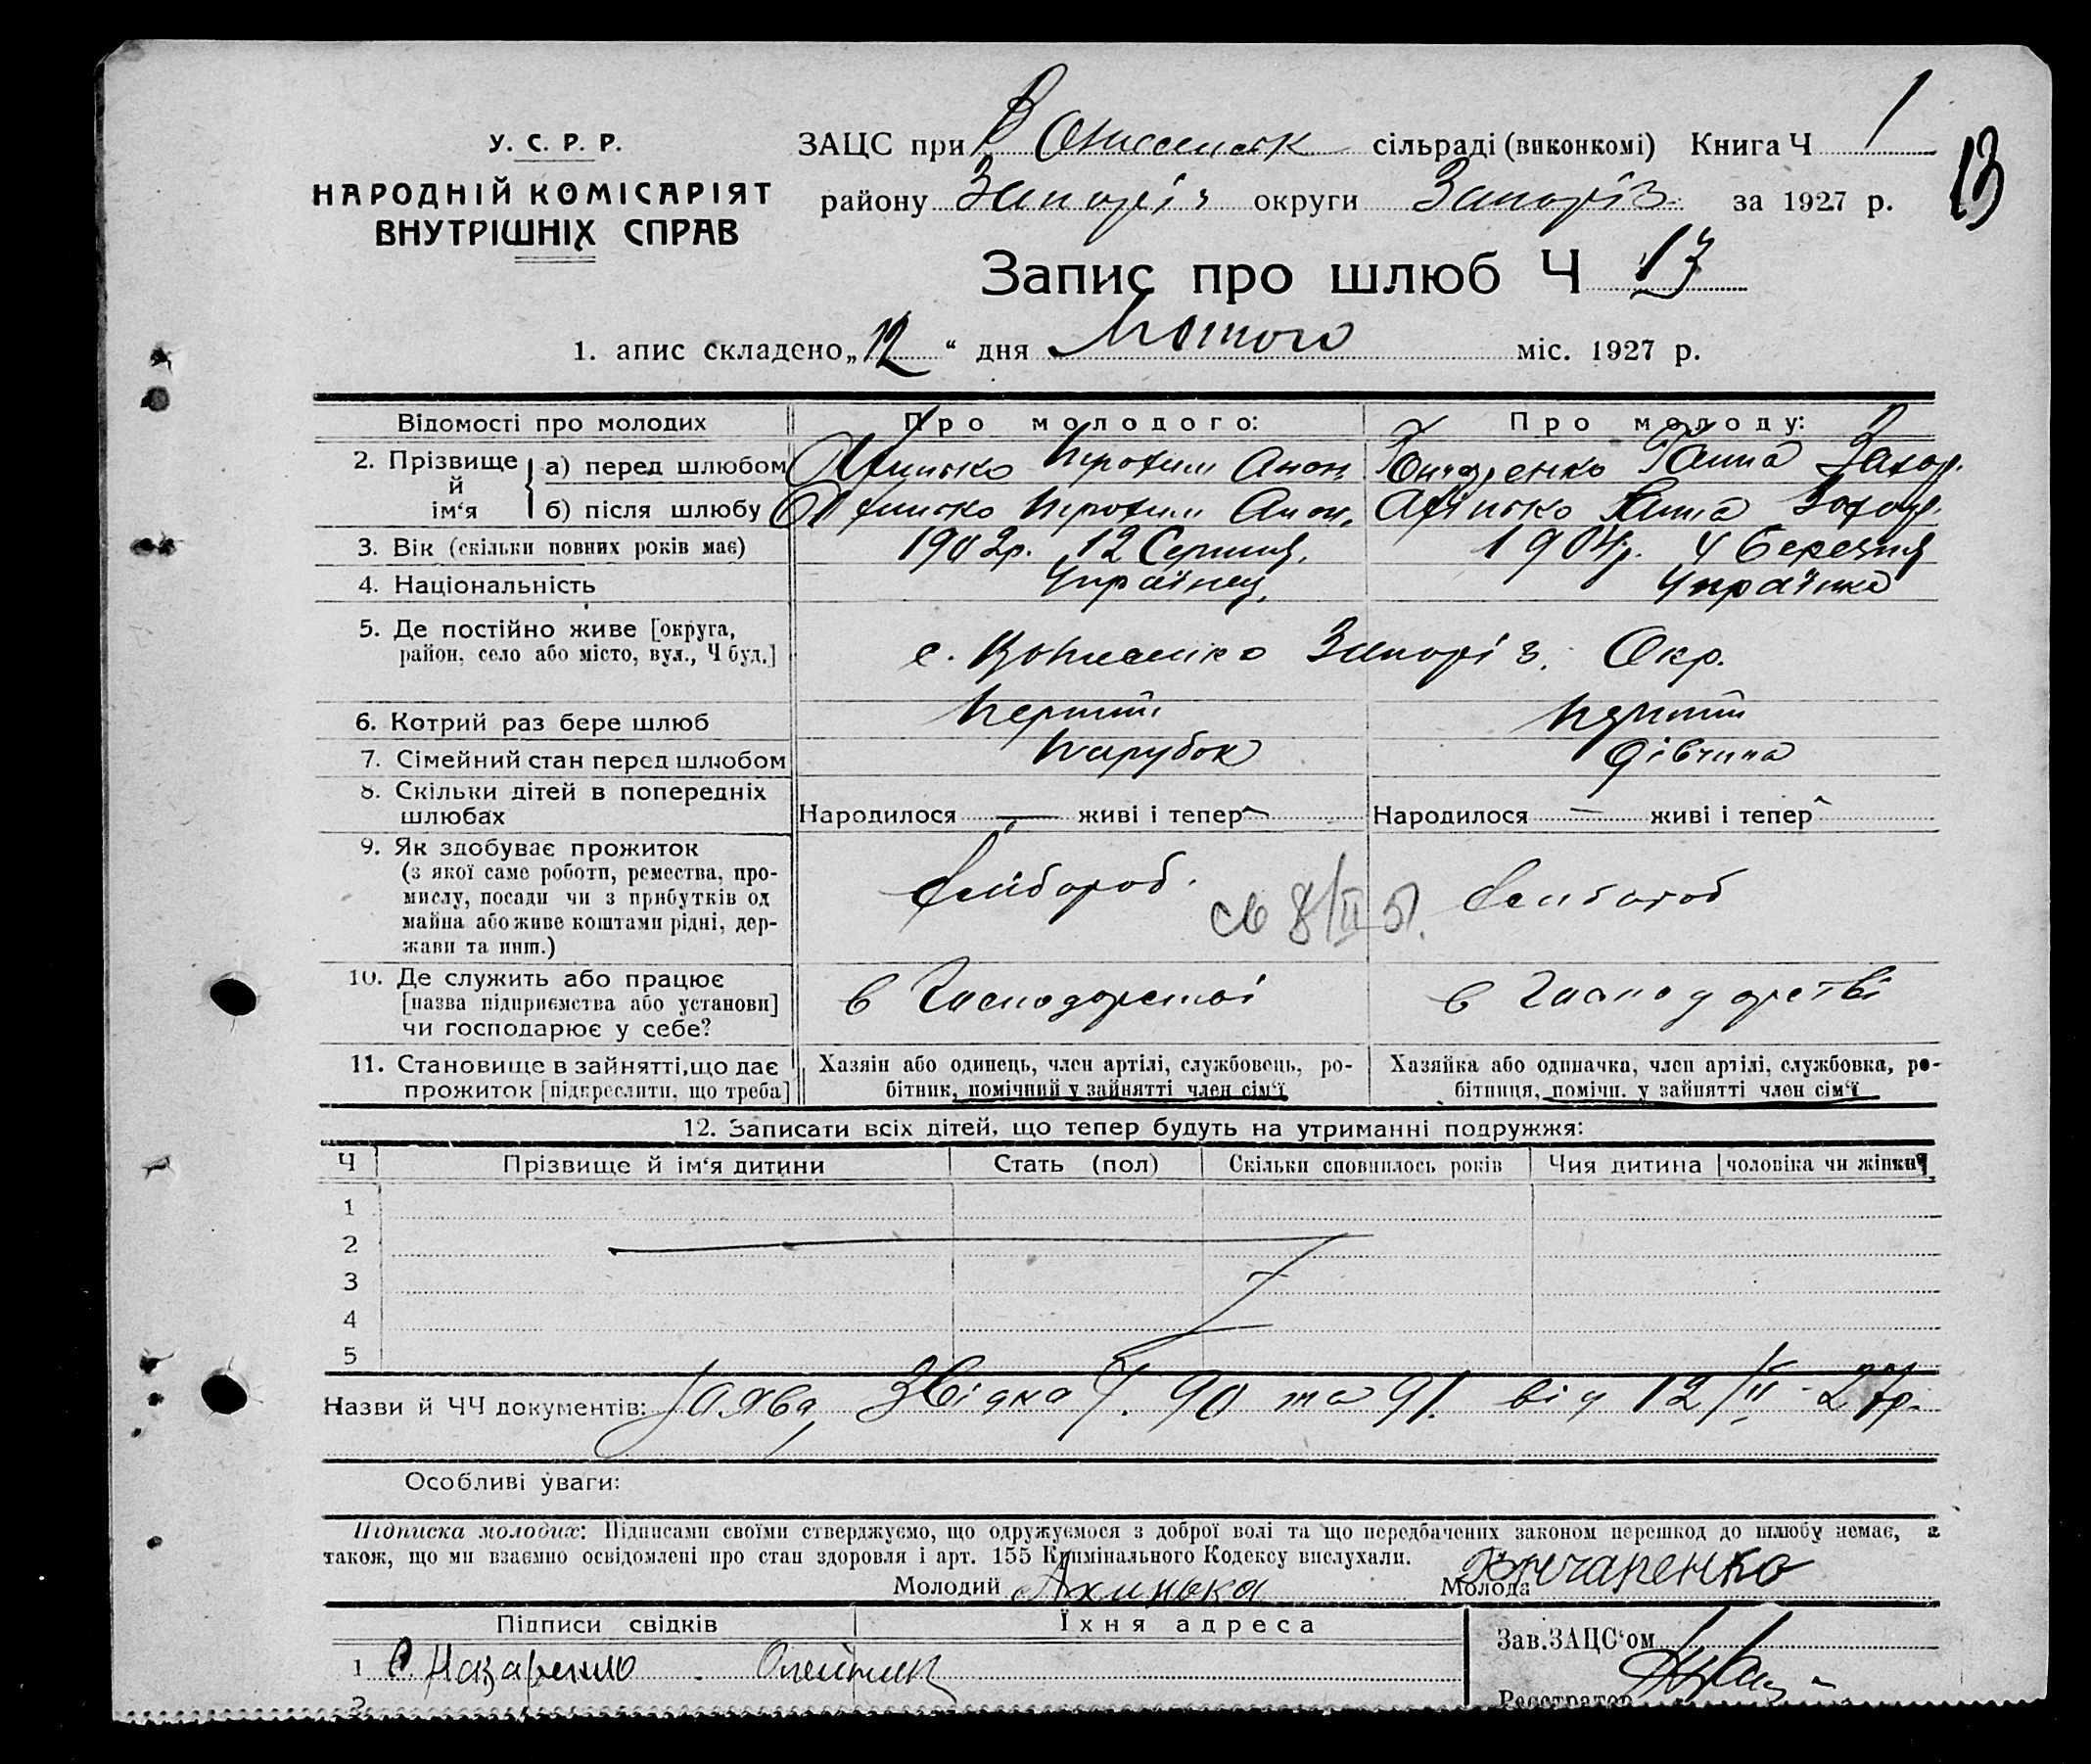 У. С. Р. Р.
НАРОДНІЙ КОМІСАРІЯТ
ВНУТРІШНІХ СПРАВ
ЗАЦС при сільраді (виконкомі) Книга Ч 1
13
району Запоріз округи Запоріз за 1927 р.
Запис про шлюб Ч 13
1. апис складено „12“ дня Лютого міс. 1927 р.
Відомості про молодих Про молодого: Про молоду:
2. Прізвище й ім‘я
а) перед шлюбом Анон. Гончаренко Ганна Захар.
б) після шлюбу Анон. Ганна Захар.
3. Вік (скільки повних років має) 1902р. 12 Серпня, 1904р. 4 березня
4. Національність Українец, Українка
5. Де постійно живе [округа,
район, село або місто, вул., Ч буд.] с. Запоріз. Окр.
6. Котрий раз бере шлюб Перший Перший
7. Сімейний стан перед шлюбом Парубок дівчина
8. Скільки дітей в попередніх
шлюбах Народилося — живі і тепер Народилося — живі і тепер
9. Як здобуває прожиток
(з якої саме роботи, ремества, про-
мислу, посади чи з прибутків од
майна або живе коштами рідні, дер-
жави та инш.)
10. Де служить або працює
[назва підприємства або установи]
чи господарює у себе? в Господарстві в Господарстві
11. Становище в зайнятті, що дає
прожиток [підкреслити, що треба]
Хазяін або одинець, член артілі, службовець, ро-
бітник, помічний у зайнятті член сім‘ї
Хазяйка або одиначка, член артілі, службовка, ро-
бітниця, помічн. у зайнятті член сім‘ї
12. Записати всіх дітей, що тепер будуть на утриманні подружжя:
Ч Прізвище й ім‘я дитини Стать (пол) Скільки сповнилось років Чия дитина [чоловіка чи жінки]
1
2
3
4
5
Назви й ЧЧ документів: Заява, Звідка Ч. 90 та 91. від 12/II-27р.
Особливі уваги:
Підписка молодих: Підписами своїми стверджуємо, що одружуємося з доброї волі та що передбачених законом перешкод до шлюбу немає, а
також, що ми взаємно освідомлені про стан здоровля і арт. 155 Кримінального Кодексу вислухали.
Молодий Ахинька Молода Гончаренко
Підписи свідків Їхня адреса
Зав.ЗАЦС‘ом
1 Назаренко
2
Реєстратор